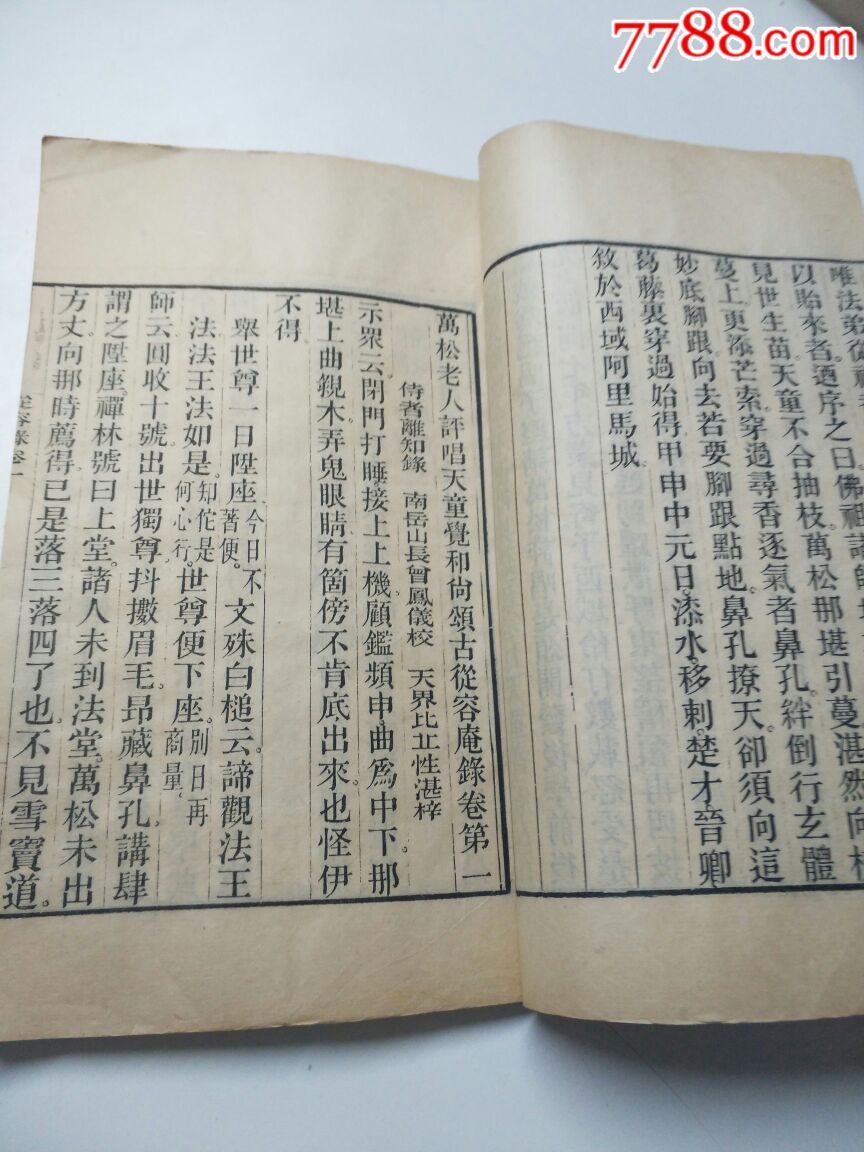 7788.com
唯法弟從
以貽來者迺序之曰佛祖諸師
見世生苗天童不合抽枝萬松那堪引蔓湛然向
蔓上更添芒索穿過尋香逐氣者鼻孔絆倒行玄體
妙底腳跟向去若要腳跟點地鼻孔撩天卻須向這
葛藤裏穿過始得甲申中元日漆水移剌楚才晉卿
敘於西域阿里馬城
萬松老人評唱天童覺和尚頌古從容庵錄卷第一
侍者離知錄 南岳山長曾鳳儀校 天界比丘性湛梓
示眾云閉門打睡接上上機顧鑑頻申曲為中下那
堪上曲親木弄鬼眼睛有箇傍不肯底出來也怪伊
不得
舉世尊一日陞座今日不著便。文殊白槌云諦觀法王
法法王法如是知佗是何心行。世尊便下座別日再商量。
師云圓收十號出世獨尊抖擻眉毛昂藏鼻孔講肆
謂之陞座禪林號曰上堂諸人未到法堂萬松未出
方丈向那時薦得已是落三落四了也不見雪竇道。
從容錄卷一